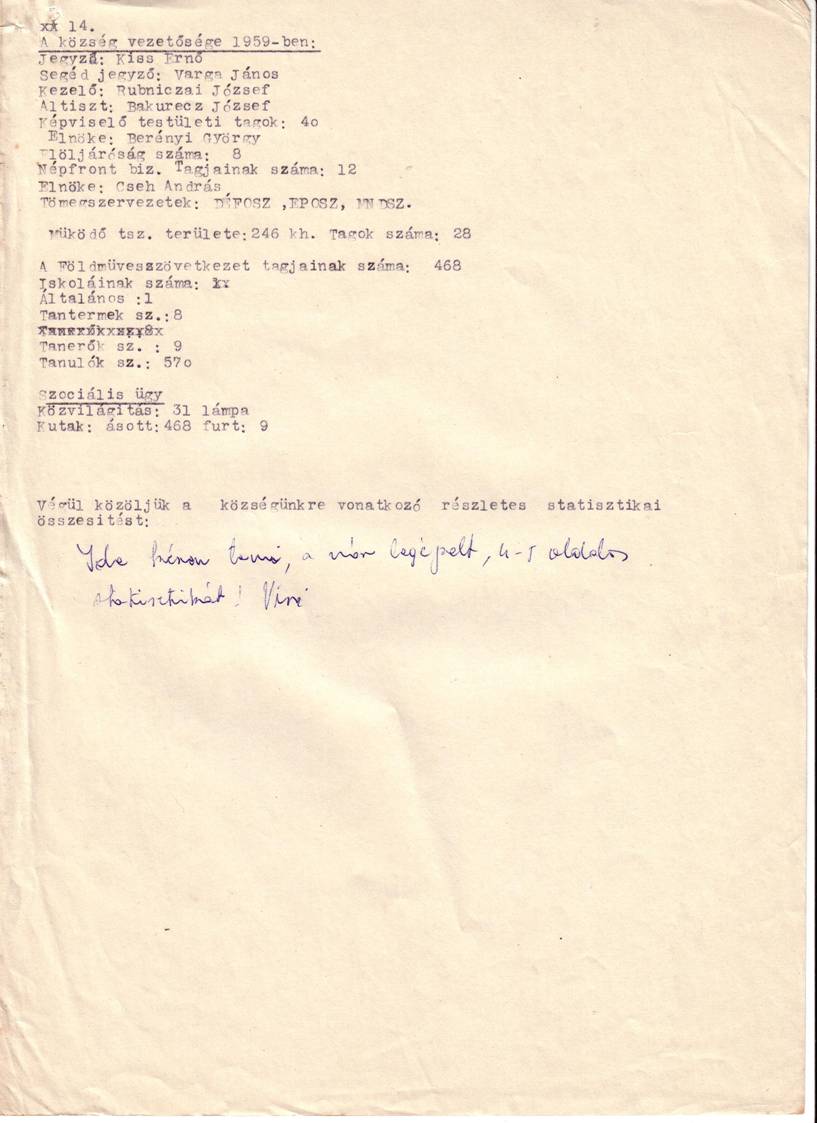 xx 14.
A község vezetősége 1959-ben:
Jegyző: Kiss Ernő
Segéd jegyző: Varga János
Kezelő: Rubniczai József
Altiszt: Bakurecz József
Képviselő testületi tagok: 4o
Elnöke: Berényi György
Elöljáróság száma: 8
Népfront biz. Tagjainak száma: 12
Elnöke: Cseh András
Tömegszervezetek: DÉFOSZ ,EPOSZ, MNDSZ.
Müködő tsz. területe:246 kh. Tagok száma: 28
A Földmüvesszövetkezet tagjainak száma: 468
Iskoláinak száma:
Általános :1
Tantermek sz.:8
Tanerők sz. : 9
Tanulók sz.: 57o
Szociális ügy
Közvilágitás: 31 lámpa
Kutak: ásott:468 furt: 9
Végül közöljük a községünkre vonatkozó részletes statisztikai
összesitést:
Ide kérem tenni, a már legépelt, 4-5 oldalas
statisztikát!